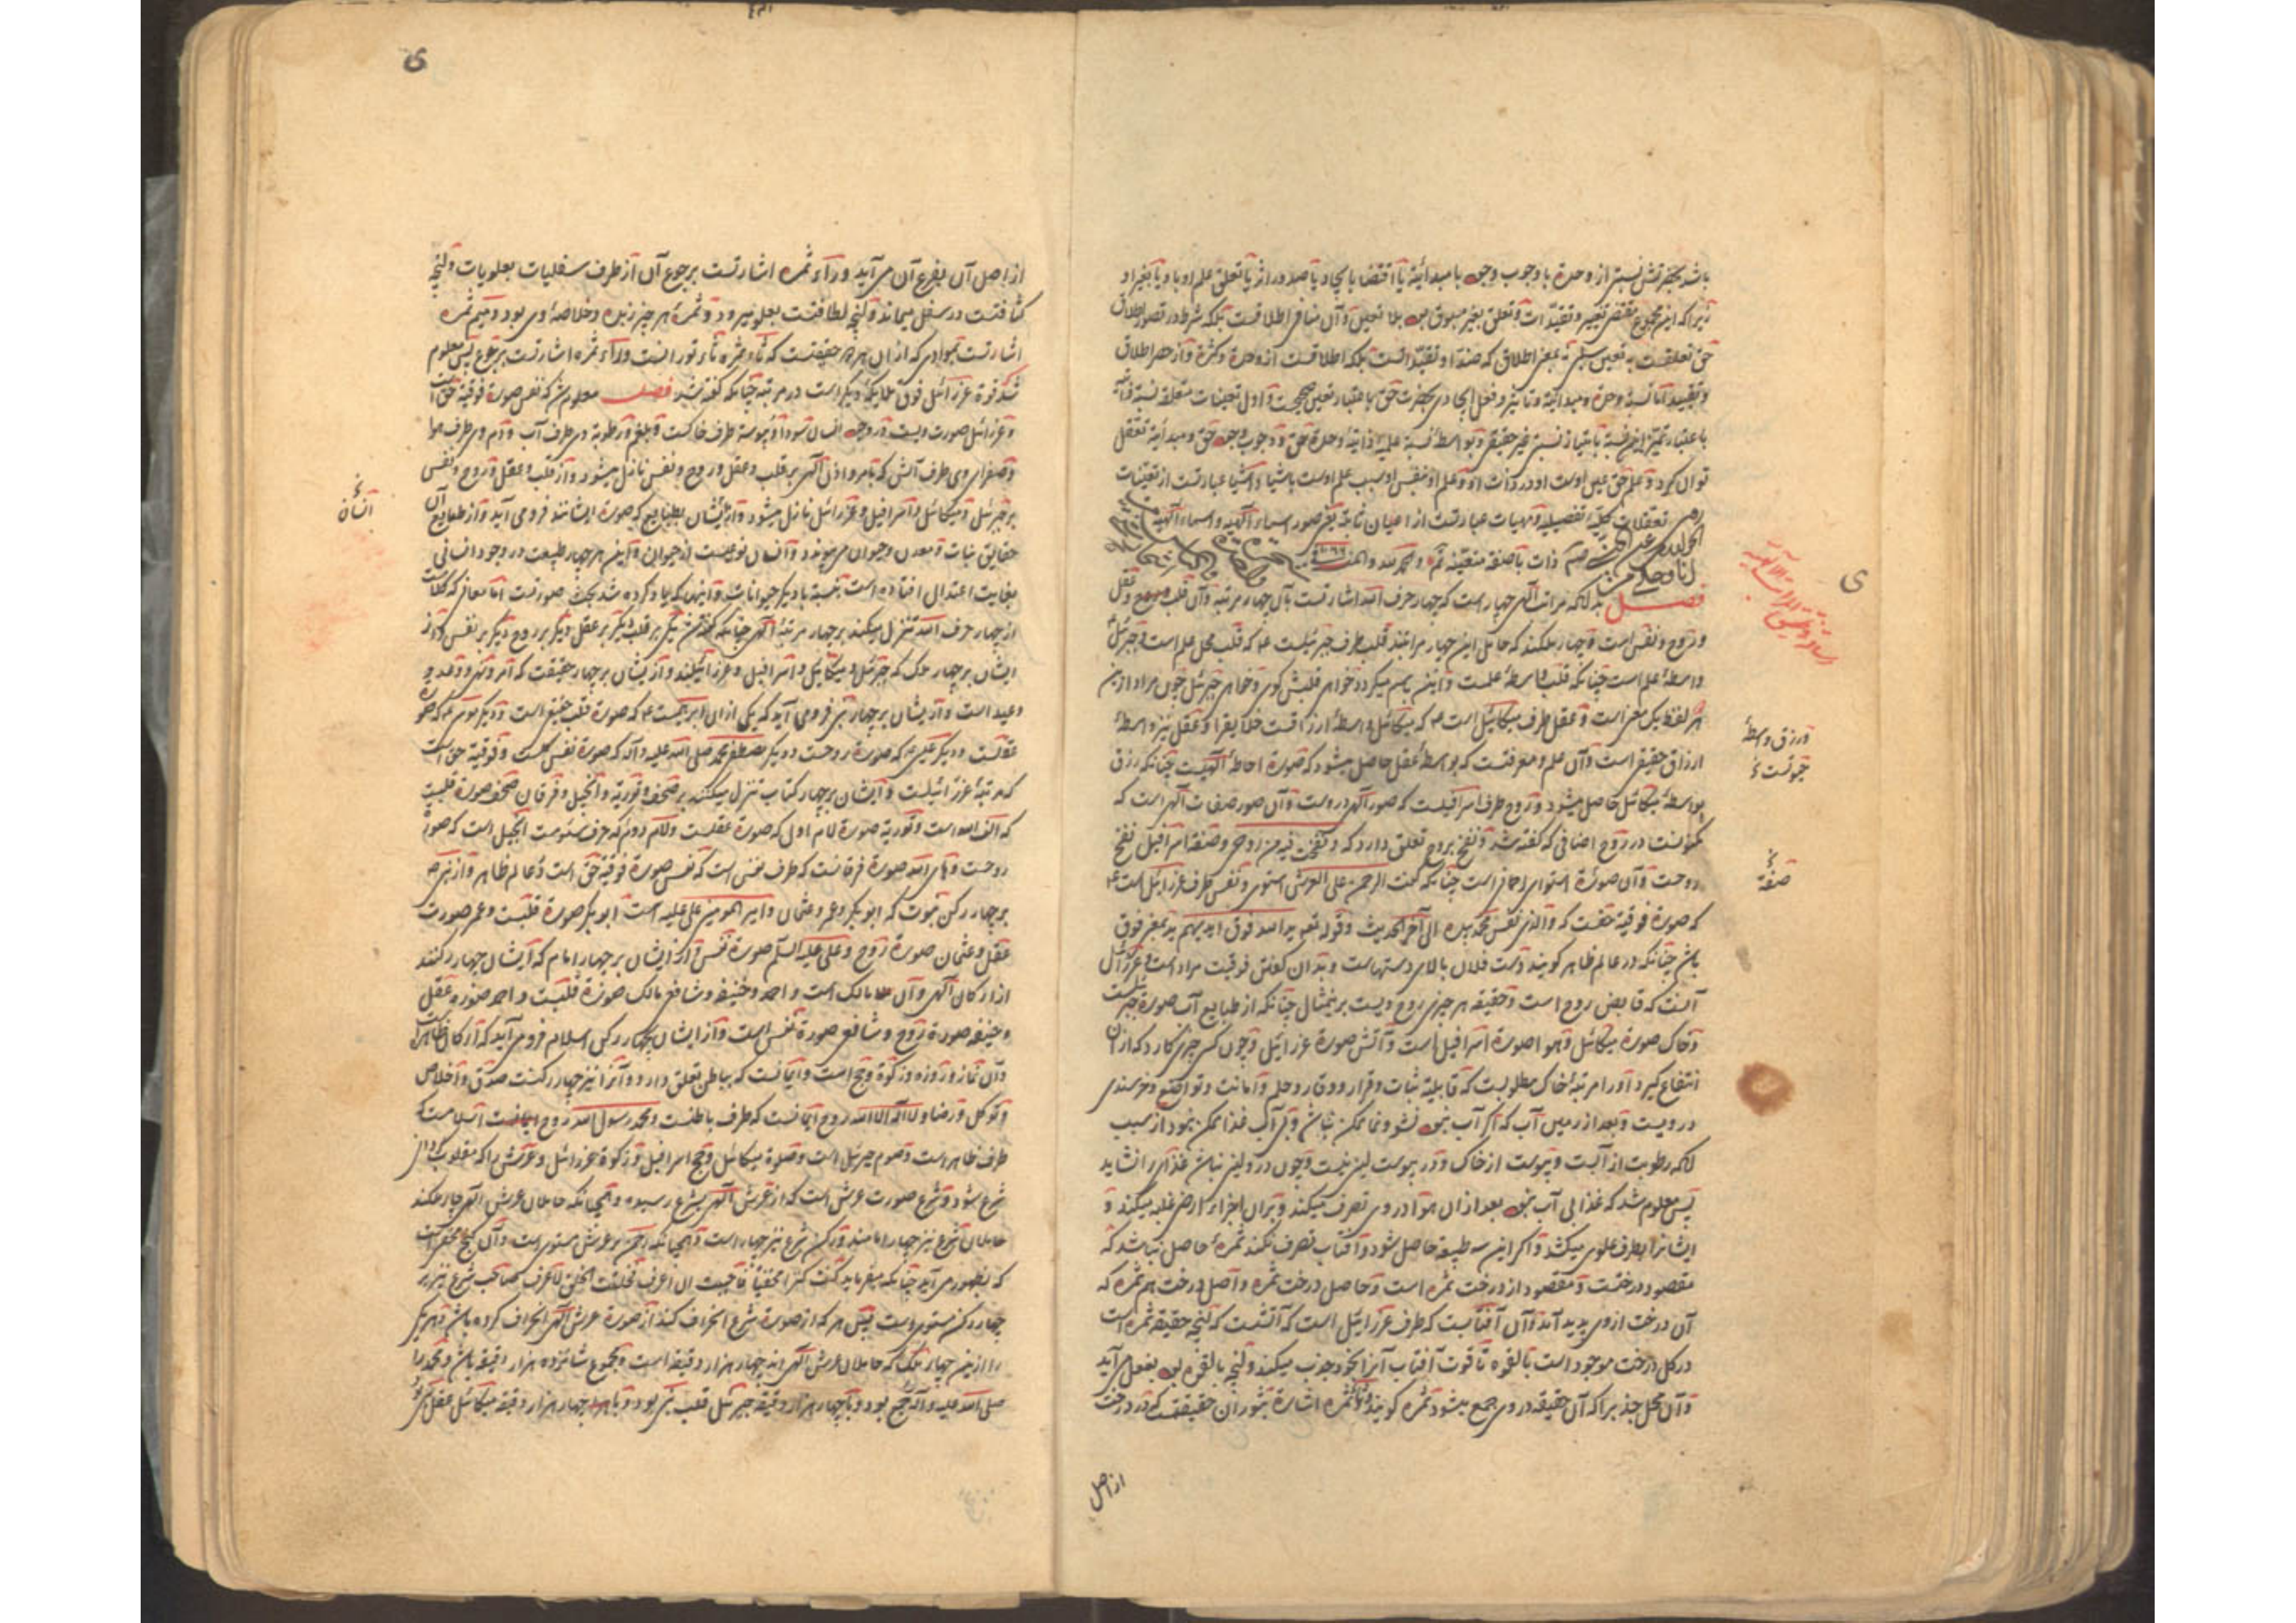 باشد بحضرتش نسبتی از وحدة یا وجوب وجود یا مبدائیة یا اقتضا یا ایجاد یا صدور اثر یا تعلق علم او باو یا بغیر او
زیرا که این مجموع مقتضی تعین و تقید است و تعلق بغیر مسبوق بود بلا تعین و آن منافی اطلاقست بلکه شرط در تصور اطلاق
حق تعلقست به تعین سلبی نه بمعنی اطلاق که ضد او تقید است بلکه اطلاقست از وحدة و کثرة و از حصر اطلاق
و تقیید اما نسبة وحدة و مبدائیة و تاثیر و فعل ایجادی بحضرت حق باعتبار تعین صحیحست و اول تعینات متعلقه نسبة
باعتبار تمیز این نسبة بامتیاز نسبتی غیر حقیقی و بواسطه نسبة علمیة ذاتیة وحدة حق و وجوب وجود حق و مبدائیة تعقل
توان کرد و علم حق عین اوست او در ذات او و علم او بنفس او سبب علم اوست باشیا و اشیا عبارتست از تعینات
تعقلات کلیة تفصیلیه و مهیات عبارتست از اعیان ثابته یعنی صور اسماء الهیه و اسماء الهیه
ذات با صفة متعینة تم و الحمد لله و المنة
فصل بدانکه مراتب الهی چهار است که چهار حرف الله اشارتست بآن چهار مرتبه و آن قلب و عقل
و روح و نفس است و چهار ملکند که حامل این چهار مراتبند قلب طرف جبرئیلست که قلب محل علم است و جبرئیل
واسطهٔ علم است چنانکه قلب واسطهٔ علمست و خواهی قلبش کوی و خواهی جبرئیل چون مراد ازین
هر لفظ یک معنی است و عقل طرف میکائیل است که میکائیل واسطهٔ ارزاقست خلایق را و عقل نیز واسطهٔ
ارزاق حقیقی است و آن علم و معرفتست که بواسطهٔ عقل حاصل میشود که صورة احاطهٔ الهیست چنانکه رزق
بواسطهٔ میکائیل حاصل میشود و روح طرف اسرافیلست که صور الهی دروست و آن صور صفات الهی است که
مکنونست در روح اضافی که کفته شد و نفخ بروح تعلق دارد که و نفخت فیه من روحی و صفة اسرافیل نفخ
روحست و آن صورة استوای رحمانی است چنانکه کفت الرحمن علی العرش استوی و نفس طرف عزرائیل است
که صورة فوقیة حقست که والذی نفس محمد بیده الی آخر الحدیث و قوله تعه ید الله فوق ایدیهم ید بمعنی فوق
باشد چنانکه در عالم ظاهر کویند دست فلان بالای دستهاست و بدان کفتن فوقیت مراد است و عزرائیل
آنست که قابض روح است و حقیقة هر چیزی روح ویست برین مثال چنانکه از طبایع آب صورة جبرئیلست
و خاک صورة میکائیل و هوا صورة اسرافیل است و آتش صورة عزرائیل و چون کسی چیزی کارد که از آن
انتفاع کیرد او را مرتبهٔ خاک مطلوبست که قابلیة ثبات و قرار و وقار و حلم و امانت و تواضع و خرسندی
درویست و بعد از زمین آب که اگر آب نبود نشو و نما ممکن نباشد و بی آب غذا ممکن نبود از سبب
آنکه رطوبت از آبست و یبوست از خاک و در یبوست لین نیست و چون درو لین نباشد غذا را نشاید
پس معلوم شد که غذا بی آب نبود بعد از آن هوا در وی تصرف میکند و بر آن اجزاء ارضی غلبه میکند و
ایشانرا بطرف علوی میکشد و اکر این سه طبیعة حاصل شود و آفتاب تصرف نکند ثمره حاصل نباشد که
مقصود درختست و مقصود از درخت ثمره است و حاصل درخت ثمره و اصل درخت هم ثمره که
آن درخت از وی پدید آمد و آن آفتابست که طرف عزرائیل است که آتشست که آنچه حقیقة ثمره است
در کل درخت موجود است بالقوه تا قوت آفتاب آنرا بخود جذب میکند و آنچه بالقوه بود بفعل می آید
و آن محل جذب را که آن حقیقه در وی جمع میشود ثمره کویند و ثاء ثمره اشارة بثوران حقیقتست که در درخت
از اصل
ورزق واسطهٔ
صفة
از اصل آن بفرع آن می آید و راء ثمره اشارتست برجوع آن از طرف سفلیات بعلویات و آنچه
کثافتست در سفل میماند و آنچه لطافتست بعلو میرود و ثمرهٔ هر چیز زبده و خلاصهٔ وی بود و میم ثمره
اشارتست بموادی که از آن ثمره حقیقتست که ثاء ثمره ثاء ثورانست و راء ثمره اشارتست برجوع پس معلوم
شد که قوة عزرائیل فوق ملایکهٔ دیکر است در مرتبه چنانکه کفته شد فصل معلوم شد که نفس صورة فوقیة حق است
و عزرائیل صورت ویست و در وجود انسان سودا و یبوسة طرف خاکست و بلغم و رطوبة وی طرف آب و دم وی طرف هوا
و صفرای وی طرف آتش که بامر و اذن الهی بر قلب و عقل و روح و نفس نازل میشود و از قلب و عقل و روح و نفس
بر جبرئیل و میکائیل و اسرافیل و عزرائیل نازل میشود و از ایشان بطبایع که صورة ایشانند فرو می آید و از طبایع آن
حقایق نبات و معدن و حیوان می پیوندد و انسان نوعیست از حیوان و این هر چهار طبیعت در وجود انسانی
بغایت اعتدال افتاده است بنسبة با دیکر حیوانات و اینها که یاد کرده شد بحث صورتست اما معانی که کلماتست
از چهار حرف الله تنزل میکند بر چهار مرتبهٔ الهی چنانکه کفته شد یکی بر قلب و دیکر بر عقل و دیکر بر روح و دیکر بر نفس و از
ایشان بر چهار ملک که جبرئیل و میکائیل و اسرافیل و عزرائیلند و از ایشان بر چهار حقیقت که امر و نهی و وعد و
وعید است و از ایشان بر چهار نبی فرو می آید که یکی از آن ابراهیمست که صورة قلب حنیفی است و دیکر موسی که صورة
عقلست و دیکر عیسی که صورة روحست و دیکر مصطفی محمد صلی الله علیه و آله که صورة نفس کلست و فوقیة حق است
که مرتبهٔ عزرائیلست و از ایشان بر چهار کتاب تنزل میکنند بر صحف و توریة و انجیل و فرقان صحف صورة قلبست
که الف الله است و توریة صورة لام اولی که صورة عقلست و لام دوم که حرف سئومست انجیل است که صورة
روحست و های الله صورة فرقانست که طرف نفس است که نفس صورة فوقیة حق است و عالم ظاهر و از نبی
بر چهار رکن نبوت که ابوبکر و عمر و عثمان و امیر المومنین علی علیه است ابوبکر صورة قلبست و عمر صورت
عقل و عثمان صورة روح و علی علیه السلم صورة نفس و از ایشان بر چهار امام که ایشان چهار رکنند
از ارکان الهی و آن مالک است و احمد و حنیفه و شافعی مالک صورة قلبست و احمد صورة عقل
و حنیفه صورة روح و شافعی صورة نفس است و از ایشان چهار رکن اسلام فرو می آید که ارکان ظاهراست
و آن نماز و روزه و زکوة و حج است و ایمانست که بباطن تعلق دارد و آنرا نیز چهار رکنست صدق و اخلاص
و توکل و رضا و لا اله الا الله روح ایمانست که طرف باطنست و محمد رسول الله روح اسلامست که
طرف ظاهر است و صوم جبرئیل است و صلوة میکائیل و حج اسرافیل و زکوة عزرائیل و عرش را که مقلوب
شرع شود و شرع صورت عرش است که از عرش الهی بشرع رسیده و همچنانکه حاملان عرش الهی چهار ملکند
حاملان شرع نیز چهار امامند و رکن شرع نیز چهار است و همچنانکه رحمن بر عرش مستویست و آن کنج مخفی است
که بظهور می آید چنانکه میفرماید کنت کنزا مخفیا فاحببت ان اعرف فخلقت الخلق لاعرف صاحب شرع نیز بر
چهار رکن مستویست پس هر که از صورة شرع انحراف کند از صورة عرش الهی انحراف کرده باشد و هر یکی
را ازین چهار ملک که حاملان عرش الهی اند چهار هزار دقیقه است و مجموع شانزده هزار دقیقه باشد و محمد را
صلی الله علیه و آله جمع بود و با چهار هزار دقیقه جبرئیل قلب نبی بود و با چهار هزار دقیقه میکائیل عقل نبی